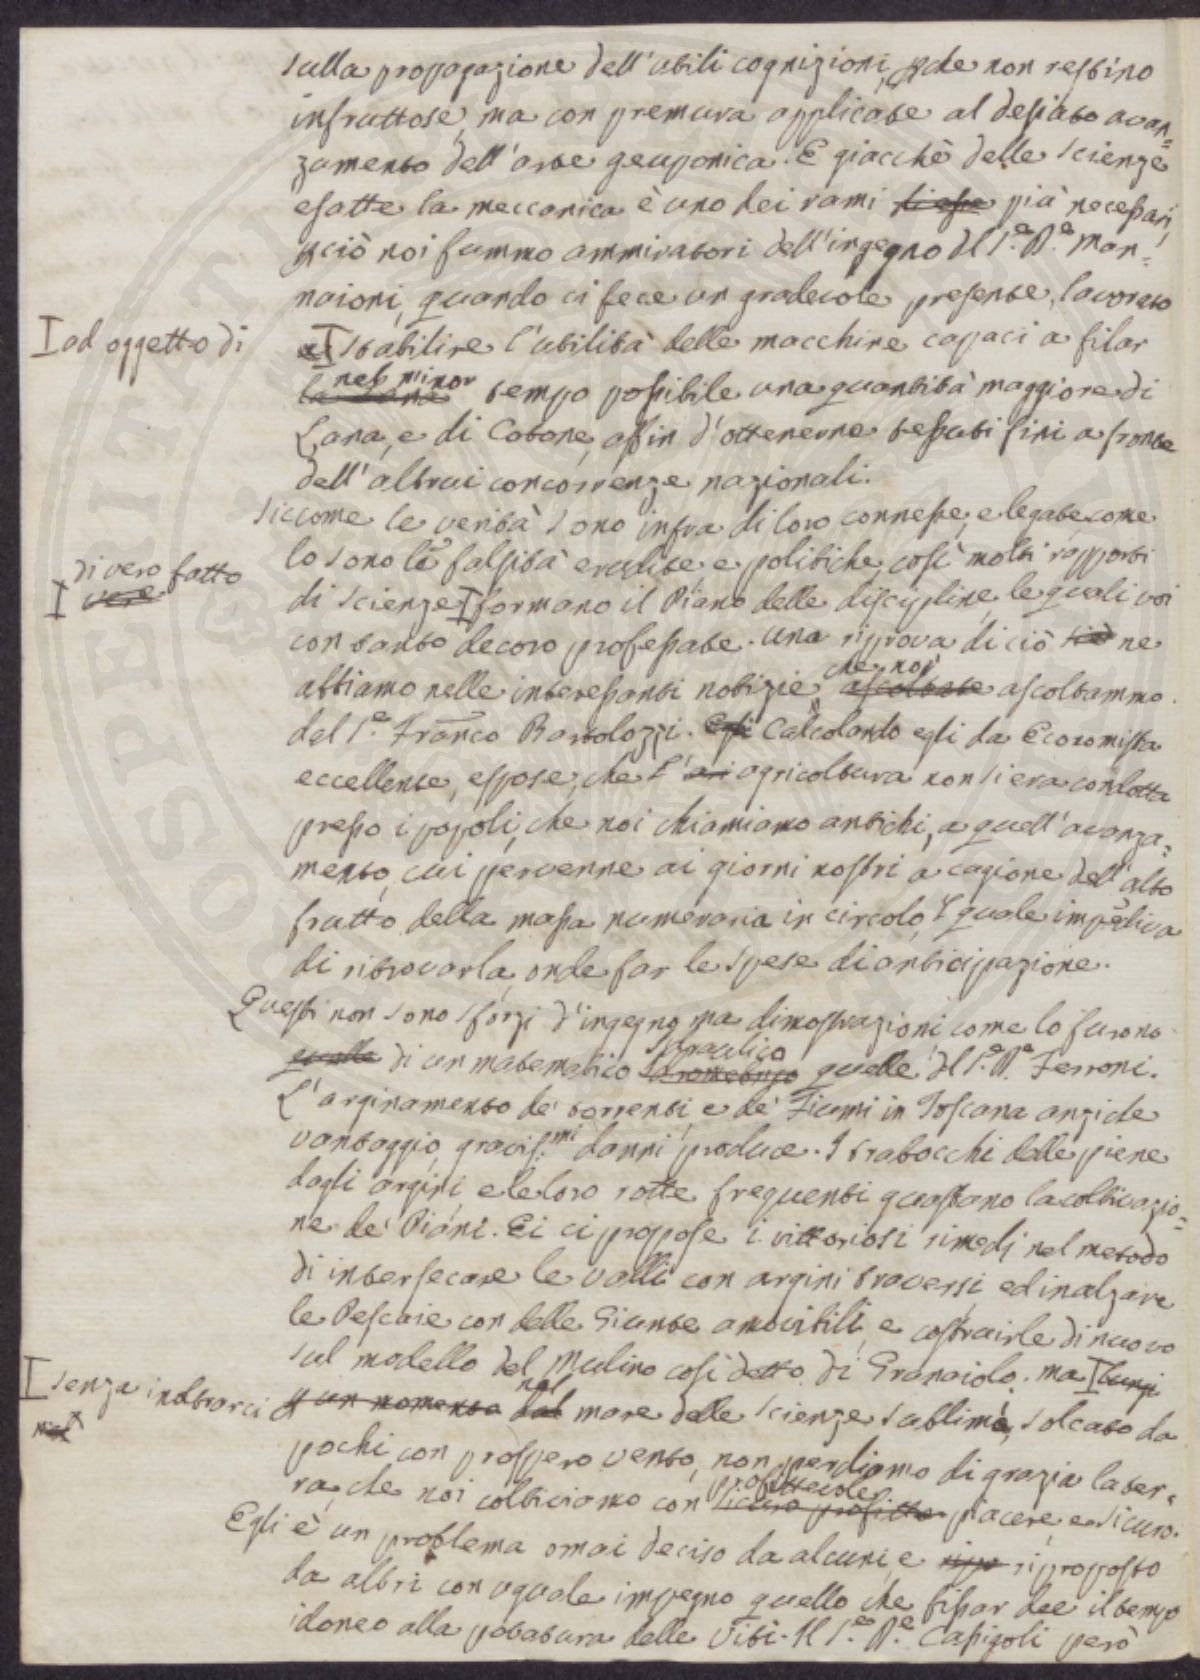 sulla propagazione dell'utili cognizioni, che non restino
infruttose, ma con premura applicate al desiato avan=
zamento dell'arte geuponica. E giacchè delle scienze
esatte la meccanica è uno dei rami di esse più necessari,
perciò noi fummo ammiratori dell'ingegno del S.e P.e Man=
naioni, quando ci fece un gradevole presente, lavorato
I ad oggetto di
I stabilire l'utilità delle macchine capaci a filar
nel minor
la lana tempo possibile una quantità maggiore di
Lana, e di Cotone, affin d'ottenerne tessuti fini a fronte
dell'altrui concorrenze nazionali.
Siccome le verità sono infra di loro connesse, e legate come
lo sono le falsità erudite e politiche, così molti rapporti
di vero fatto
I vere
di scienze I formano il Piano delle discipline, le quali voi
con tanto decoro professate. Una riprova di ciò ciò ne
che noi
abbiamo nelle interessanti notizie, ascoltate ascoltammo
dal S.e Franco Bartolozzi. Egli Calcolando egli da Economista
eccellente, espose, che l'ari agricoltura non si era condotta
presso i popoli, che noi chiamiamo antichi, a quell'avanza=
mento, cui pervenne ai giorni nostri a cagione dell'alto
frutto della massa numeraria in circolo, il quale impediva
di ritrovarla, onde far le spese di anticipazione.
Questi non sono sforzi d'ingegno ma dimostrazioni come lo furono
Idraulico
quelle di un matematico quelle del S.e P.e Ferroni.
L'arginamento de' torrenti e de' Fiumi in Toscana anzi che
vantaggio, graviss.mi danni produce. I trabocchi delle piene
dagli argini e le loro rotte frequenti guastano la coltivazio=
ne de' Piani. Ei ci propose i vittoriosi rimedj nel metodo
di intersecare le valli con argini traversi, ed inalzare
le Pescaie con delle Giunte amovibili, e costruirle di nuovo
sul modello del Mulino così detto di Granaiolo. ma I lungi
I senza inoltrarci
nel
nel
per un momento dal mare delle scienze sublimi, solcato da
pochi con prospero vento, non perdiamo di grazia la ter=
profittevole
ra, che noi coltiviamo con sicuro profitto piacere, e sicuro.
Egli è un problema omai deciso da alcuni, e ripo riproposto
da altri con uguale impegno quello che fissar dee il tempo
idoneo alla potatura delle Viti. Il S.e P.e Casigoli però